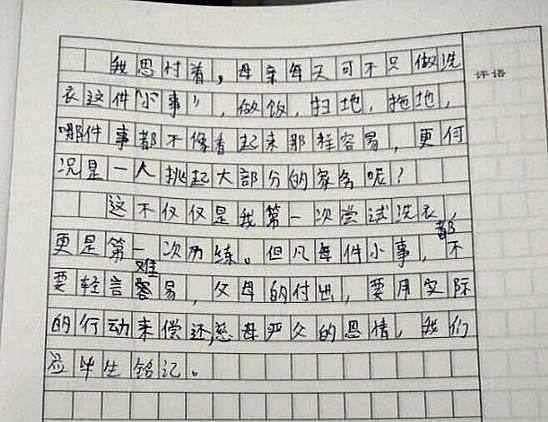 我思忖着，母亲每天可不只做洗
评语
衣这件“小事”，做饭，扫地，拖地，
哪件事都不像看起来那样容易，更何
况是一人挑起大部分的家务呢？
这不仅仅是我第一次尝试洗衣，
更是第一次历练。但凡每件小事，都不
要轻言难易，父母的付出，要用实际
的行动来偿还，慈母严父的恩情，我们
应毕生铭记。